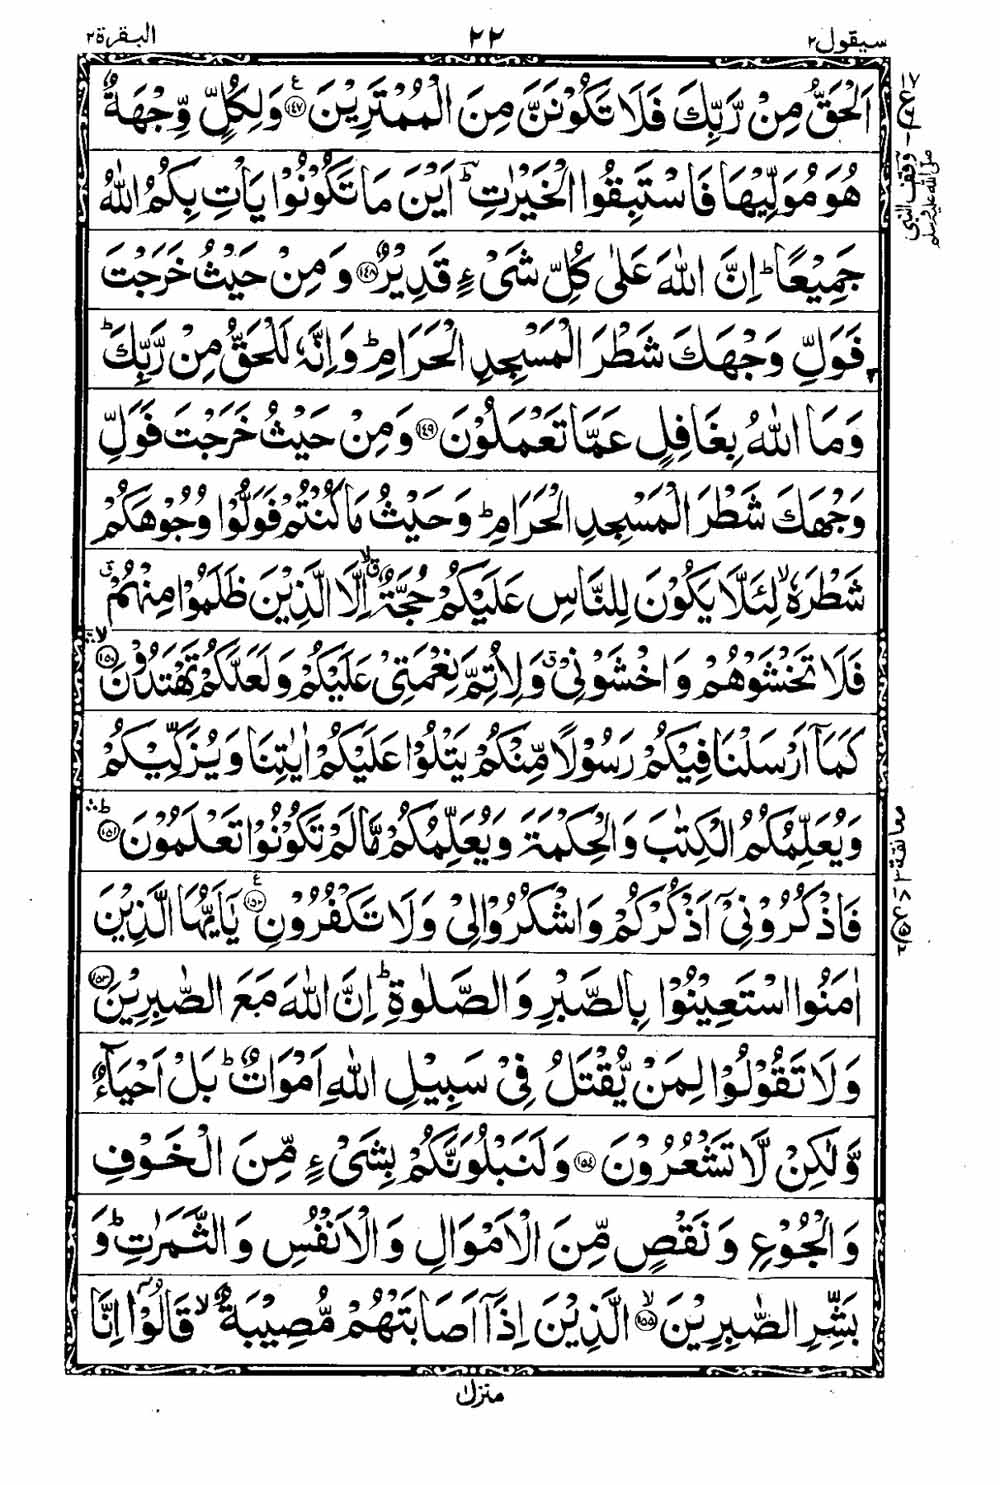 سيقول٢ ٢٢ البقرة٢
اَلْحَقُّ مِنْ رَّبِّكَ فَلَا تَكُوْنَنَّ مِنَ الْمُمْتَرِيْنَ ﴿١٤٧﴾ ع وَلِكُلٍّ وِّجْهَةٌ
هُوَ مُوَلِّيْهَا فَاسْتَبِقُوا الْخَيْرٰتِ ؔط اَيْنَ مَا تَكُوْنُوْا يَاْتِ بِكُمُ اللّٰهُ
جَمِيْعًا ؕ اِنَّ اللّٰهَ عَلٰى كُلِّ شَىْءٍ قَدِيْرٌ ﴿١٤٨﴾ وَمِنْ حَيْثُ خَرَجْتَ
فَوَلِّ وَجْهَكَ شَطْرَ الْمَسْجِدِ الْحَرَامِ ؕ وَاِنَّهٗ لَلْحَقُّ مِنْ رَّبِّكَ ؕ
وَمَا اللّٰهُ بِغَافِلٍ عَمَّا تَعْمَلُوْنَ ﴿١٤٩﴾ وَمِنْ حَيْثُ خَرَجْتَ فَوَلِّ
وَجْهَكَ شَطْرَ الْمَسْجِدِ الْحَرَامِ ؕ وَحَيْثُ مَا كُنْتُمْ فَوَلُّوْا وُجُوْهَكُمْ
شَطْرَهٗ ۙ لِئَلَّا يَكُوْنَ لِلنَّاسِ عَلَيْكُمْ حُجَّةٌ ق لا اِلَّا الَّذِيْنَ ظَلَمُوْا مِنْهُمْ ق
فَلَا تَخْشَوْهُمْ وَاخْشَوْنِىْ ق وَلِاُتِمَّ نِعْمَتِىْ عَلَيْكُمْ وَلَعَلَّكُمْ تَهْتَدُوْنَ ﴿١٥٠﴾ لا ۛ
كَمَآ اَرْسَلْنَا فِيْكُمْ رَسُوْلًا مِّنْكُمْ يَتْلُوْا عَلَيْكُمْ اٰيٰتِنَا وَيُزَكِّيْكُمْ
وَيُعَلِّمُكُمُ الْكِتٰبَ وَالْحِكْمَةَ وَيُعَلِّمُكُمْ مَّا لَمْ تَكُوْنُوْا تَعْلَمُوْنَ ﴿١٥١﴾ ط ۛ
فَاذْكُرُوْنِىْٓ اَذْكُرْكُمْ وَاشْكُرُوْا لِىْ وَلَا تَكْفُرُوْنِ ﴿١٥٢﴾ ع يٰٓاَيُّهَا الَّذِيْنَ
اٰمَنُوا اسْتَعِيْنُوْا بِالصَّبْرِ وَالصَّلٰوةِ ؕ اِنَّ اللّٰهَ مَعَ الصّٰبِرِيْنَ ﴿١٥٣﴾
وَلَا تَقُوْلُوْا لِمَنْ يُّقْتَلُ فِىْ سَبِيْلِ اللّٰهِ اَمْوَاتٌ ؕ بَلْ اَحْيَآءٌ
وَّلٰكِنْ لَّا تَشْعُرُوْنَ ﴿١٥٤﴾ وَلَنَبْلُوَنَّكُمْ بِشَىْءٍ مِّنَ الْخَوْفِ
وَالْجُوْعِ وَنَقْصٍ مِّنَ الْاَمْوَالِ وَالْاَنْفُسِ وَالثَّمَرٰتِ ؕ وَ
بَشِّرِ الصّٰبِرِيْنَ ﴿١٥٥﴾ لا الَّذِيْنَ اِذَآ اَصَابَتْهُمْ مُّصِيْبَةٌ ۙ قَالُوْٓا اِنَّا
منزل١
وقف النبي صلى الله عليه وسلم
معانقة ٢